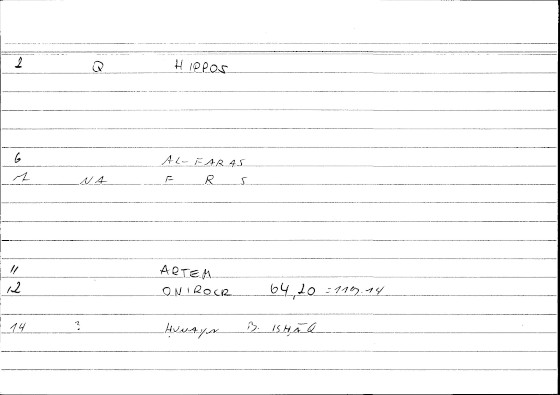 2 Q HIPPOS
6 AL-FARAS
1 NA F R S
11 ARTEM
12 ONIROCR 64,20 = 119.14
14 ? ḤUNAYN B. ISḤĀQ